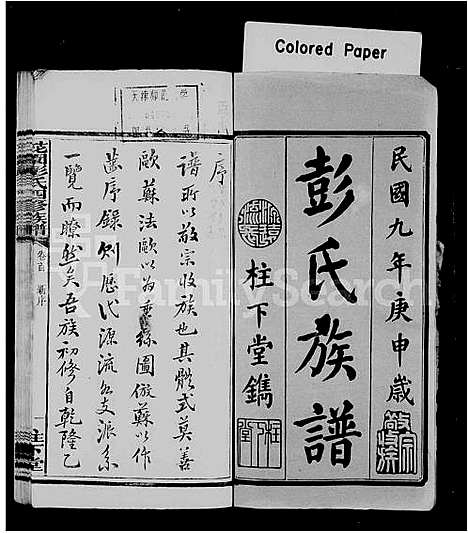 Colored Paper
民國九年庚申歲
敬宗收族
彭氏族譜
柱下堂鐫
序
譜所以敬宗收族也其體式莫善
歐蘇法歐以為垂絲圖倣蘇以作
齒序錄則歷代源流公支派系
一覽而瞭然矣吾族初修自乾隆乙
彭氏四修族譜
卷首
新序
柱下堂
FamilySearch